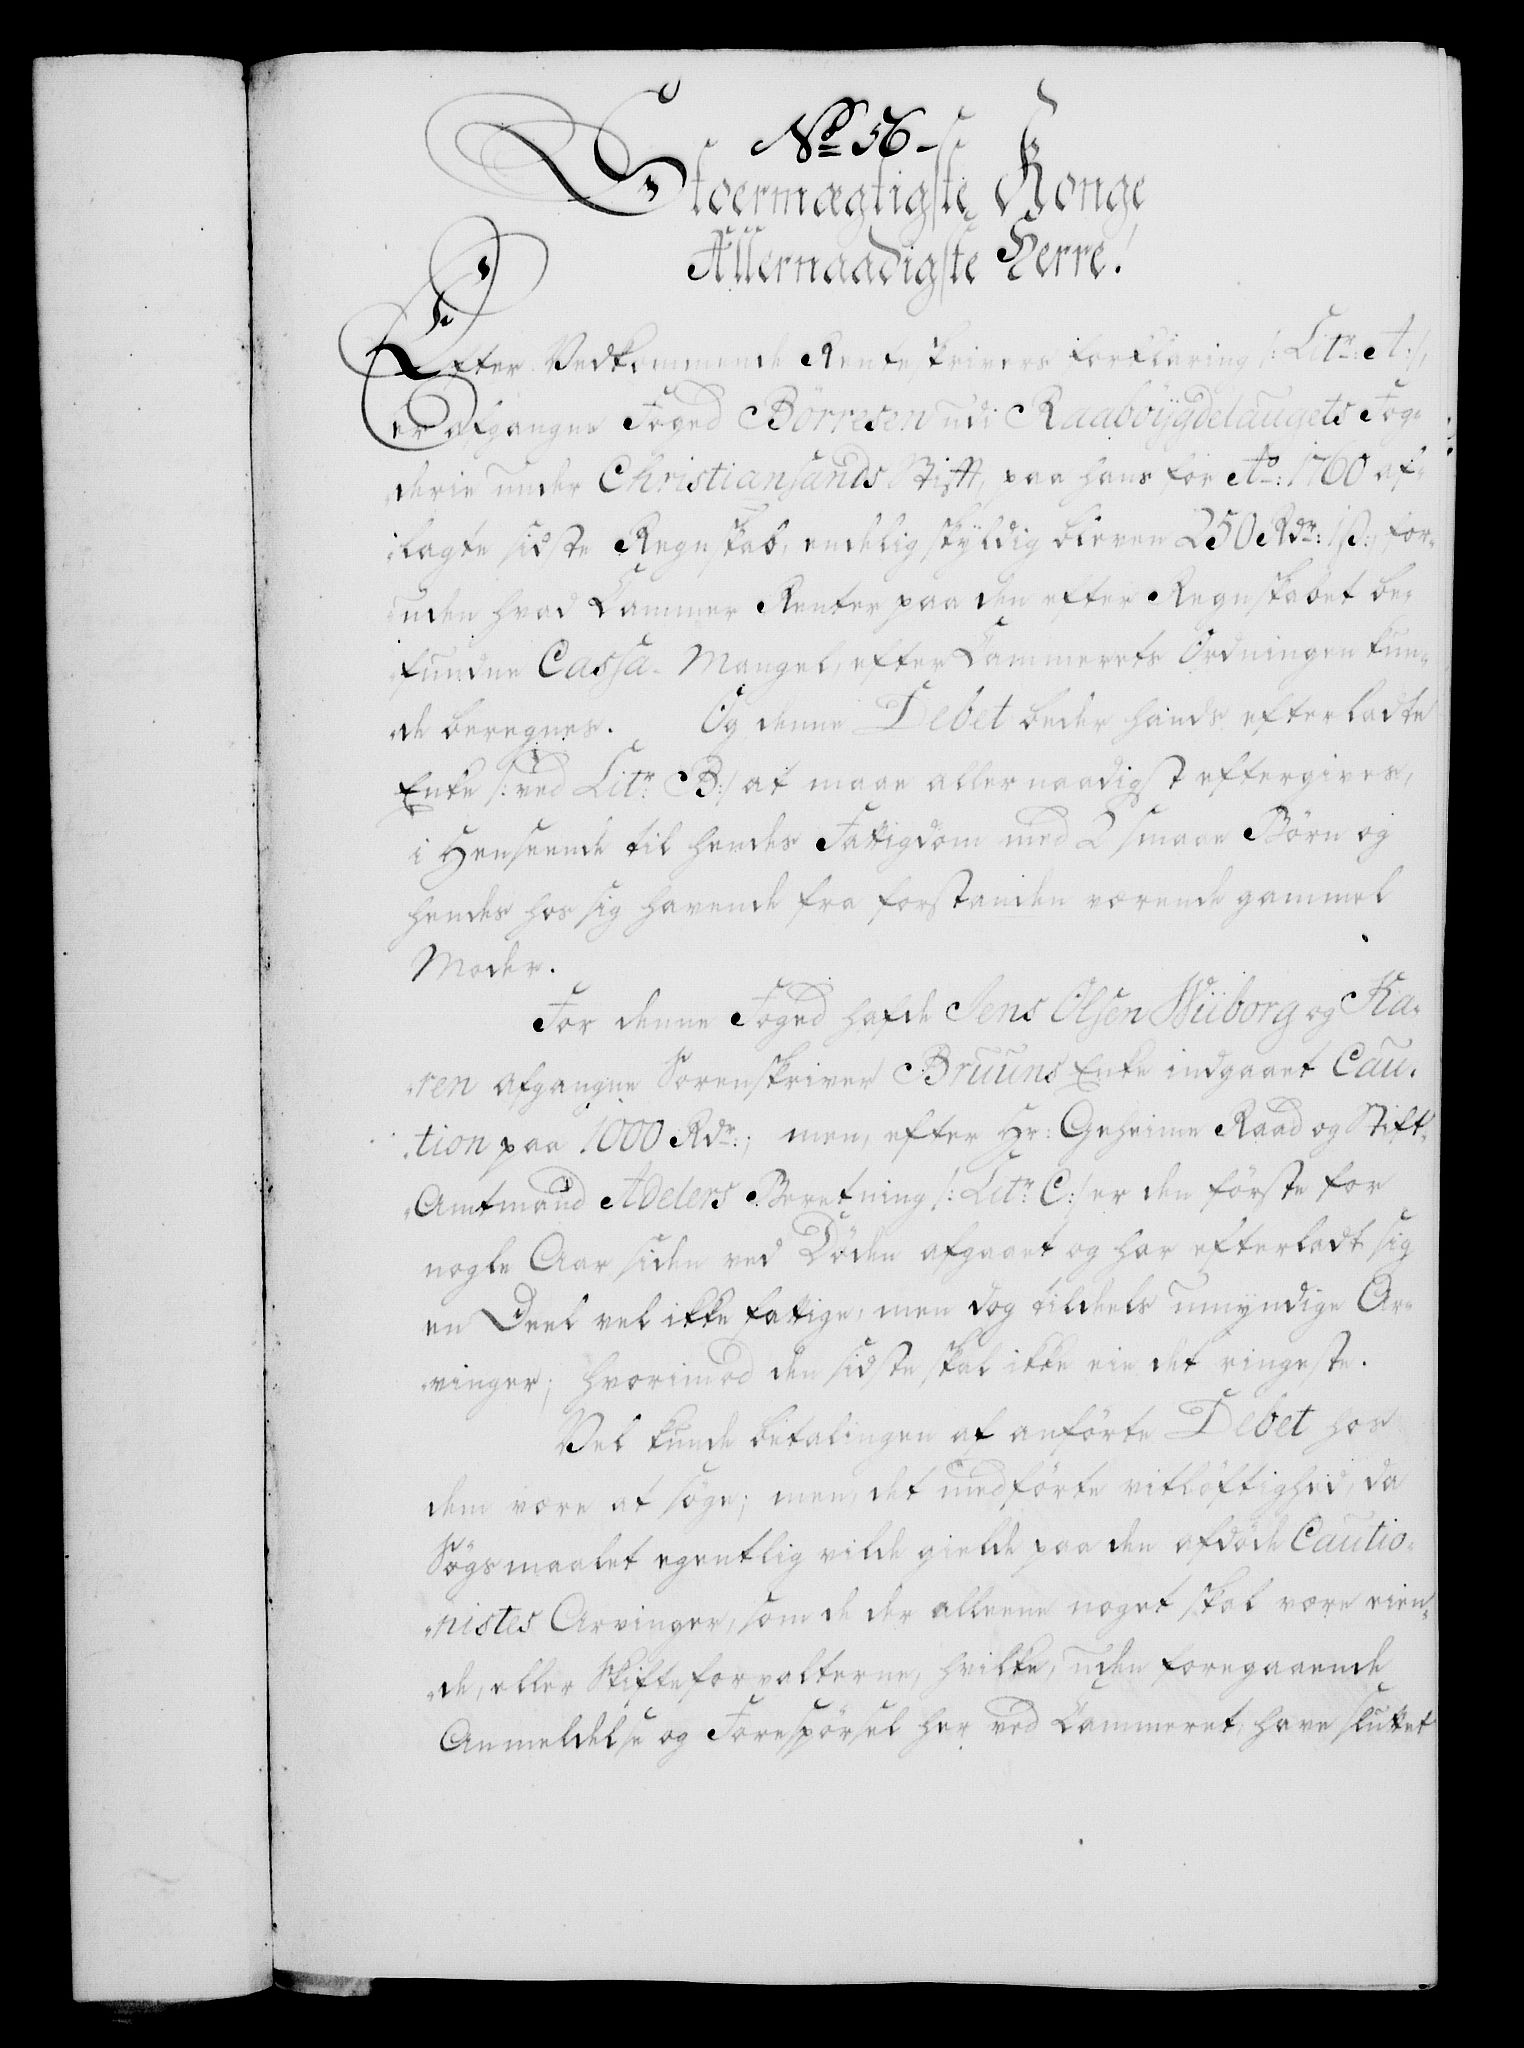 No 56
Stoermægtigste Konge
Allernaadigste Herre!
Efter Vedkommende Renteskrivers forklaring /: Litr: A:/,
er afgangne Foged Börresen udi Raaböygdelaugets Fog-
derie under Christiansands Stift, paa hans for Ao: 1760 af-
lagte sidste Regnskab, endelig skyldig bleven 250 Rdr: 1 ß:, for-
uden hvad Cammer Renter paa den efter Regnskabet be-
fundne Cassa-Mangel, efter Cammerets Ordningen kun-
de beregnes. Og denne Debet beder hands efterladte
Enke /: ved Litr: B:/ at maae allernaadigst eftergives,
i Henseende til hendes Fattigdom med 2 smaae Börn og
hendes hos sig havende fra forstanden værende gammel
Moder.
For denne Foged hafde Jens Olsen Wiiborg og Ka-
ren afgangne Sorenskriver Bruuns Enke indgaaet Cau-
tion paa 1000 Rdr:; men, efter Hr: Geheime Raad og Stift-
Amtmand Adelers Beretning /: Litr: C:/ er den förste for
nogle Aar siden ved Döden afgaaet og har efterladt sig
en Deel vel ikke fattige, men dog tildeels umyndige Ar-
vinger; hvorimod den sidste skal ikke eie det ringeste.
Vel kunde betalingen af anförte Debet hos
dem være at söge; men, det medförte vitlöftighed, da
Sögsmaalet egentlig vilde gielde paa den afdöde Cautio-
nistes Arvinger, som de der alleene noget skal være eien-
de, eller Skifteforvalterne, hvilke, uden foregaaende
Anmeldelse og Forespörsel her ved Cammeret, have sluttet